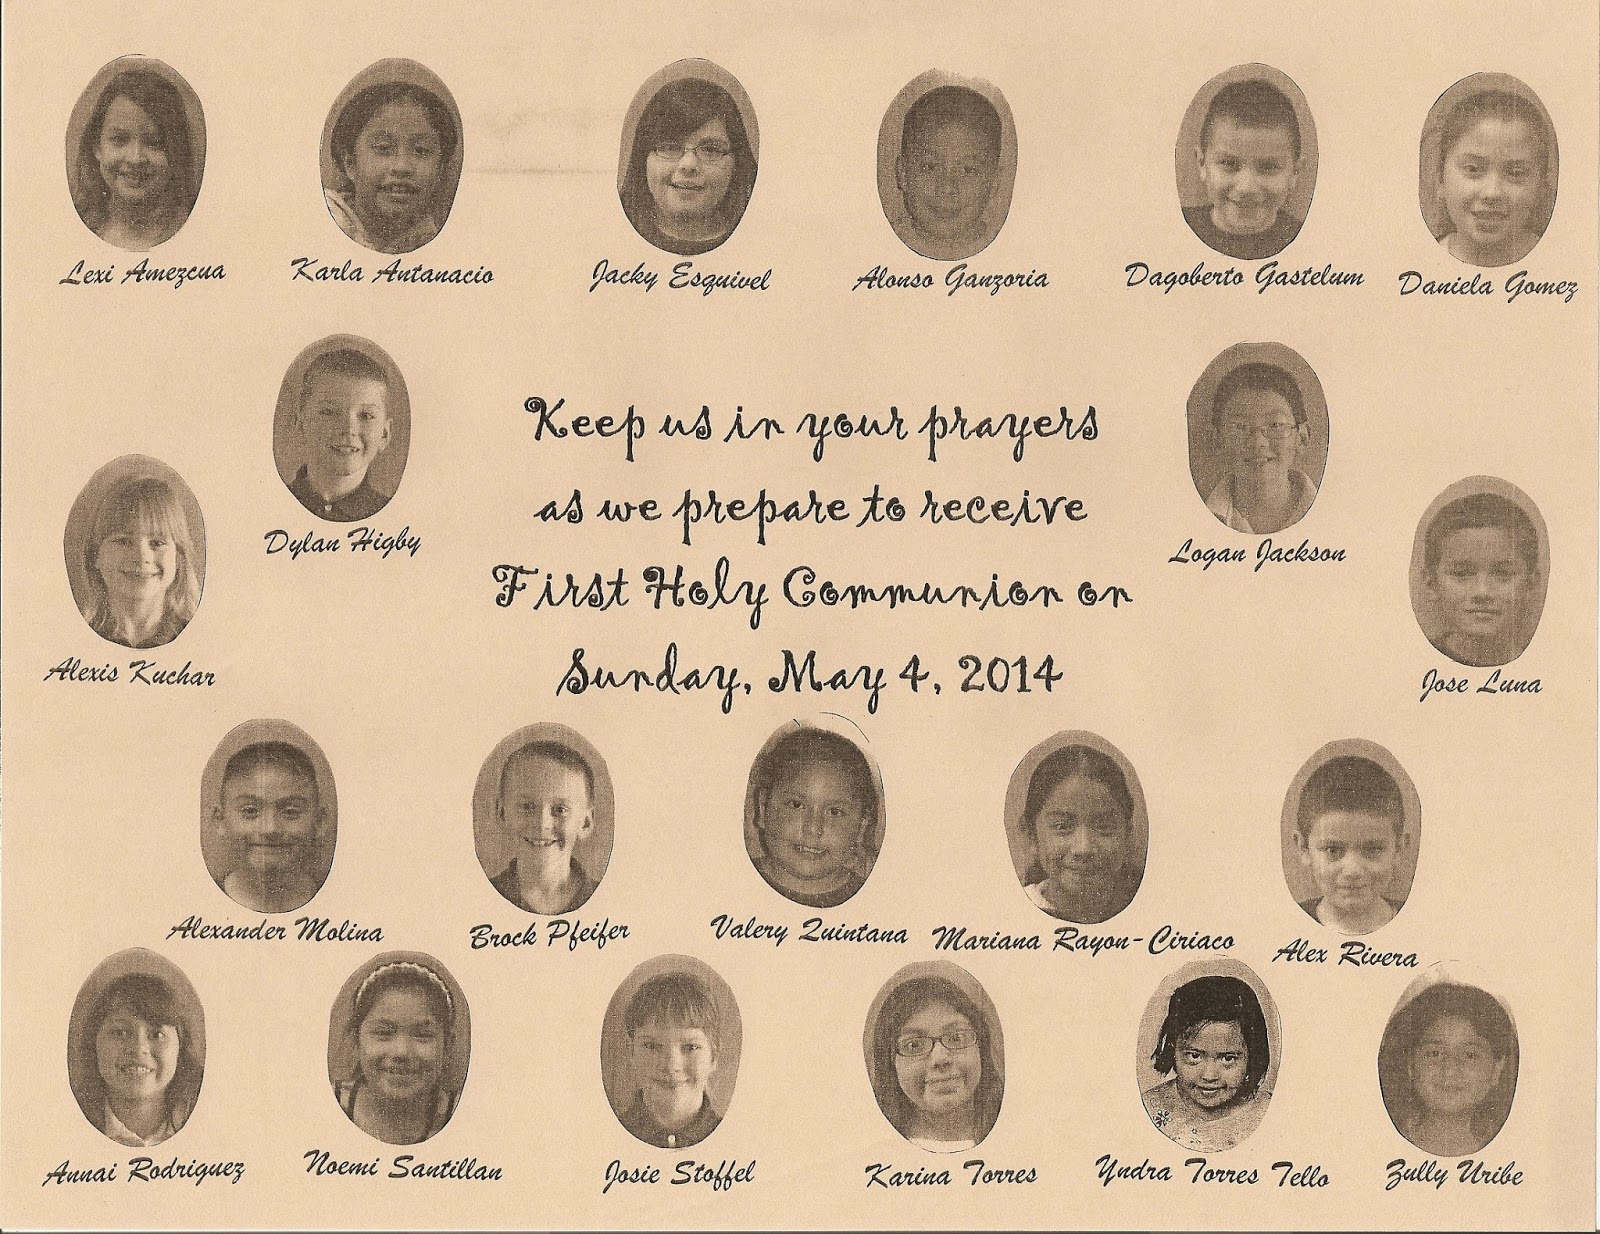 Lexi Amezcua
Karla Antanacio
Jacky Esquivel
Alonso Ganzoria
Dagoberto Gastelum
Daniela Gomez
Dylan Higby
Keep us in your prayers
as we prepare to receive
First Holy Communion on
Sunday, May 4, 2014
Logan Jackson
Alexis Kuchar
Jose Luna
Alexander Molina
Brock Pfeifer
Valery Quintana
Mariana Rayon-Ciriaco
Alex Rivera
Annai Rodriguez
Noemi Santillan
Josie Stoffel
Karina Torres
Yndra Torres Tello
Zully Uribe